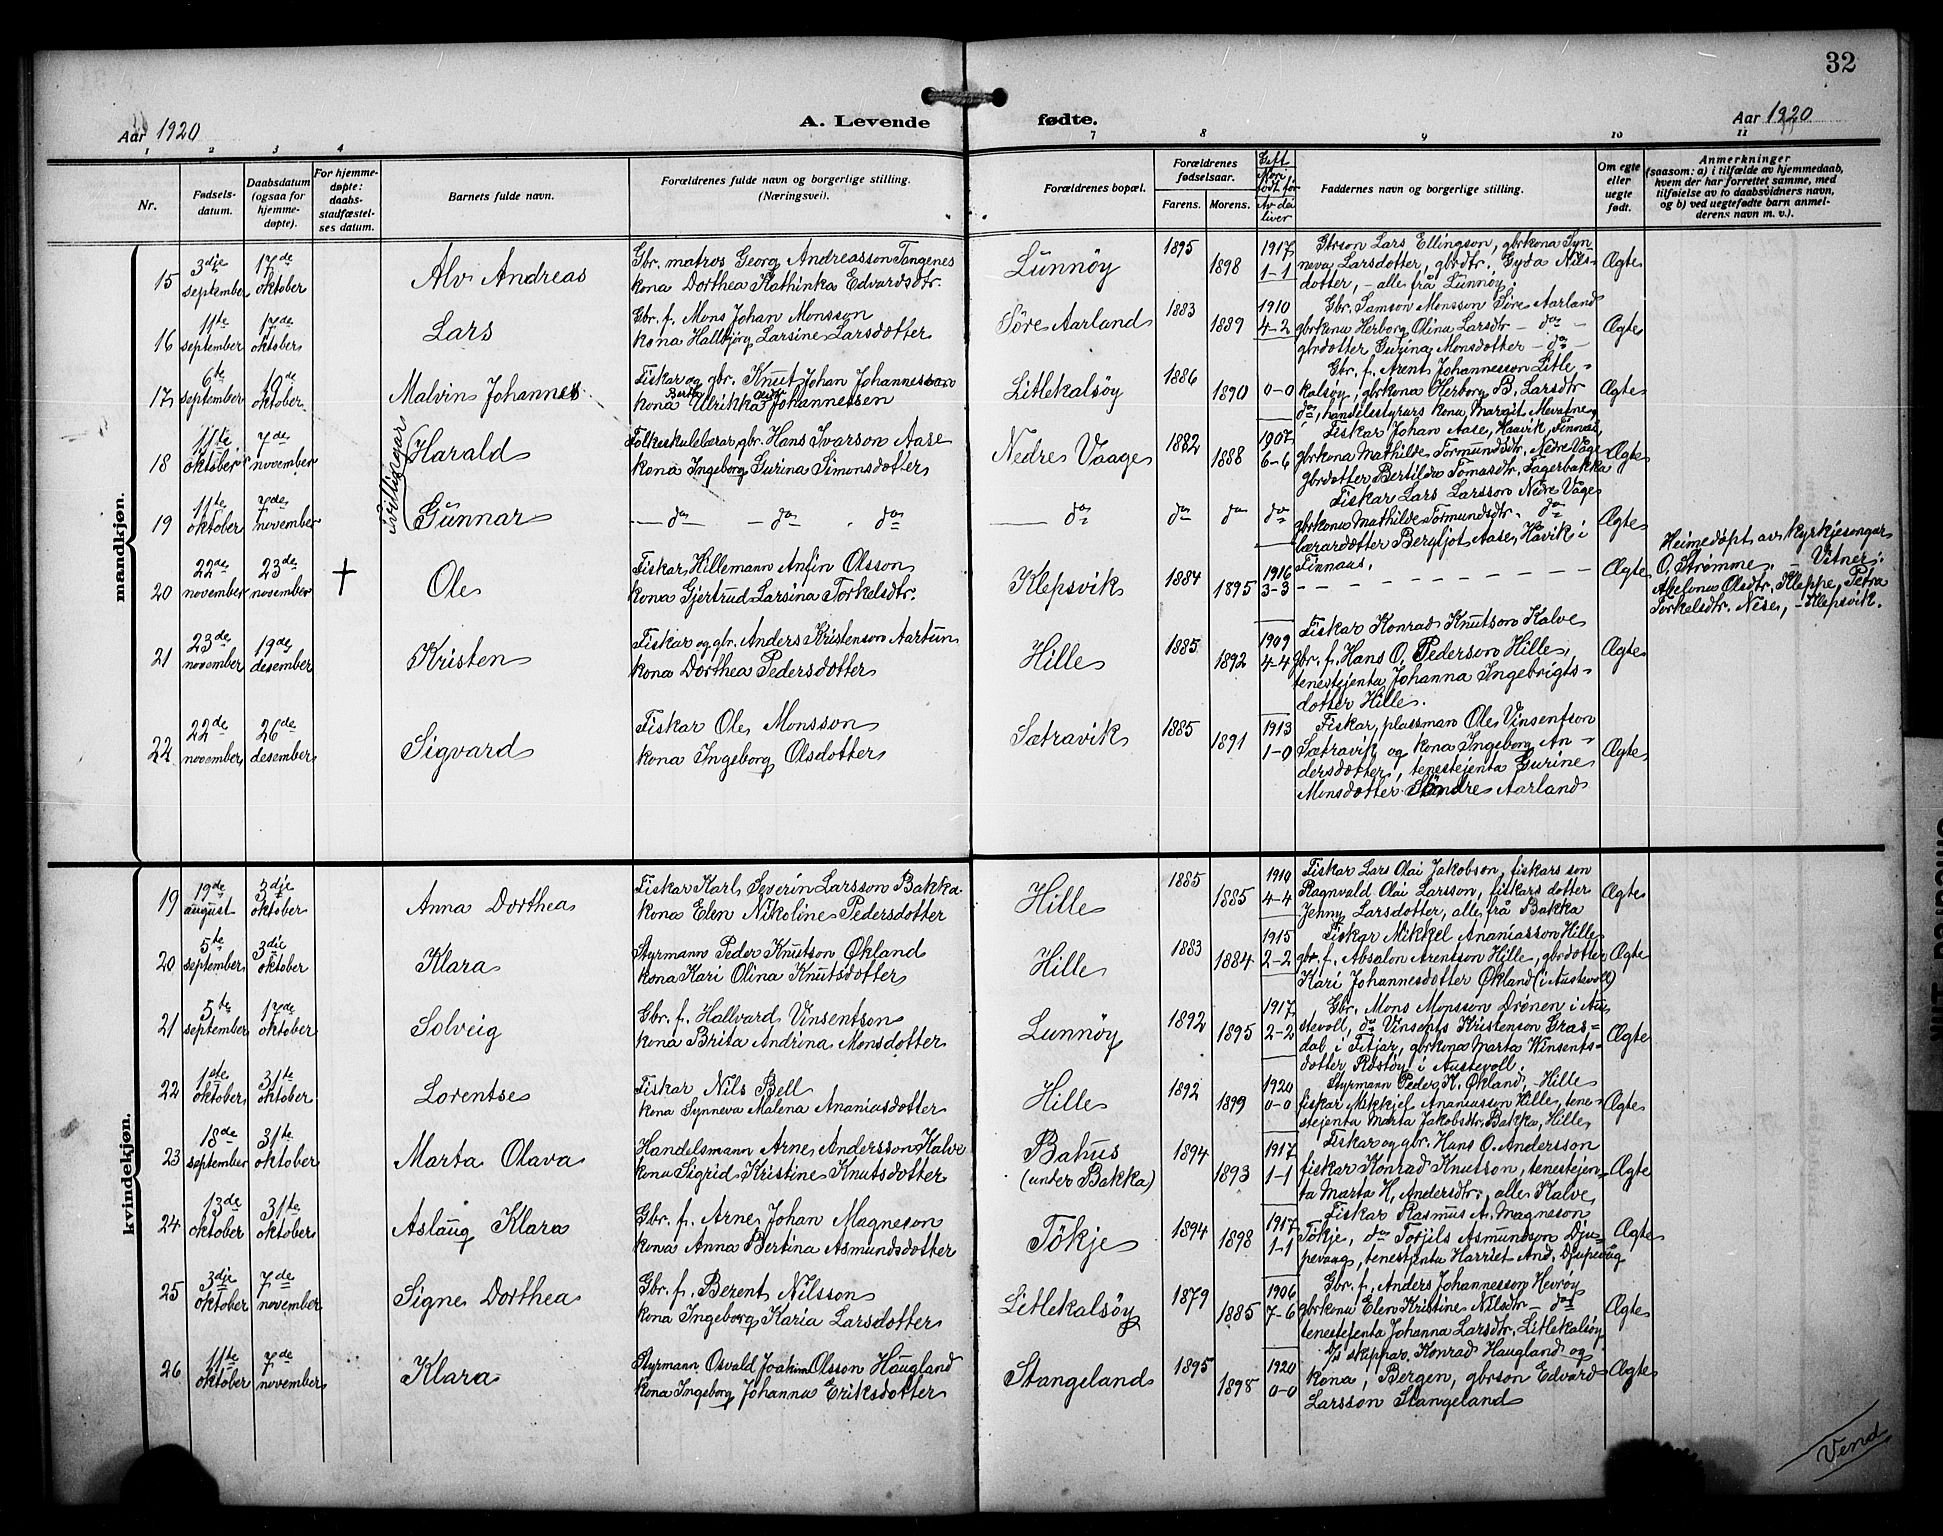 32
Aar 1920
A. Levende
fødte.
Aar 1920
1 2 3 4 7 8 9 10 11
Nr.
Fødsels-
datum.
Daabsdatum
(ogsaa for
hjemme-
døpte).
For hjemme-
døpte:
daabs-
stadfæstel-
ses datum.
Barnets fulde navn.
Forældrenes fulde navn og borgerlige stilling.
(Næringsvei).
Forældrenes bopæl.
Forældrenes
fødselsaar.
Farens. Morens.
Gift
Av dei
liver
Faddernes navn og borgerlige stilling.
Om egte
eller
uegte
født.
Anmerkninger
(saasom: a) i tilfælde av hjemmedaab,
hvem der har forrettet samme, med
tilføielse av to daabsvidners navn,
og b) ved uegtefødte barn anmel-
derens navn m. v.).
mandkjøn.
15
3die
september
17de
oktober
Alv Andreas
Gbr. matros Georg Andreasson Tangenes
kona Dorthea Kathinka Edvardsdtr.
Lunnøy
1895
1898
1917
1-1
Gbrson Lars Ellingson, gbrkona Syn-
neva Larsdotter, gbrdtr. Gyda Nils-
dotter, - alle frå Lunnøy.
Ægte
16
11te
september
17de
oktober
Lars
Gbr. f. Mons Johan Monsson
kona Hallbjørg Larsine Larsdotter
Søre Aarland
1883
1889
1910
4-2
Gbr. Samson Monsson Søre Aarland
gbrkona Herborg Olina Larsdtr - do -
gbrdotter Gurina Monsdotter - do -
Ægte
17
6te
september
oktober
Malvin Johannes
Fiskar og gbr. Knut Johan Johannesson
kona Berta Ulrikka Johannessen
Litlekalsøy
1886
1890
0-0
Gbr. f. Arent Johannesson Litle-
kalsøy, gbrkona Herborg B. Larsdtr
do, handelsstyrars kona Margit Mevatne
Ægte
tvillingar
18
11te
oktober
7de
november
Harald
Folkeskulelærar, gbr. Hans Ivarson Aase
kona Ingeborg Gurina Simonsdotter
Nedre Vaage
1882
1888
1907
6-6
Fiskar Johan Aase, Haavik, Finnaas,
gbrkona Mathilde Tormundsdtr. Nedre Våge
gbrdotter Bertilde Tomasdtr. Fagerbakka
Ægte
19
11te
oktober
7de
november
Gunnar
- do - do - do
- do do do do
Fiskar Lars Larsson Nedre Våge
gbrkona Mathilde Tormundsdtr. do
lærardotter Bergljot Aase, Håvik i
Finnaas.
Ægte
20
22de
november
23de
november
+
Ole
Fiskar, Hillemann Anfin Olsson
kona Gjertrud Larsina Torkelsdtr.
Klepsvik
1884
1895
1916
3-3
- - - - - - - - -
Ægte
Heimedøpt av kyrkjesongar
O. Strømme. - Vitner:
Abelona Olsdtr. Kleppe, Petra
Torkelsdtr. Nese, - Klepsvik.
21
23de
november
19de
desember
Kristen
Fiskar og gbr. Anders Kristenson Aartun
kona Dorthea Pedersdotter
Hille
1885
1892
1909
4-4
Fiskar Konrad Knutson Kalve
gbr. f. Hans O. Pederson Hille,
tenestejenta Johanna Ingebrigts-
dotter Hille.
Ægte
22
22de
november
26de
desember
Sigvard
Fiskar Ole Monsson
kona Ingeborg Olsdotter
Sætravik
1885
1891
1913
1-0
Fiskar, plassman Ole Vinsentson
Sætravik og kona Ingeborg An-
dersdotter, tenestejenta Gurine
Monsdotter Søndre Aarland
Ægte
kvindekjøn.
19
19de
august
3die
oktober
Anna Dorthea
Fiskar Karl Severin Larsson Bakka
kona Elen Nikoline Pedersdotter
Hille
1885
1885
1910
4-4
Fiskar Lars Olai Jakobson, fiskars son
Ragnvald Olai Larsson, fiskars dotter
Jenny Larsdotter, alle frå Bakka
Ægte
20
5te
september
3die
oktober
Klara
Styrmann Peder Knutson Økland
kona Kari Olina Knutsdotter
Hille
1883
1884
1915
2-2
Fiskar Mikkel Ananiasson Hille
gbr. f. Absalon Arentson Hille, gbrdotter
Kari Johannesdotter Økland (i Austevoll)
Ægte
21
5te
september
17de
oktober
Solveig
Gbr. f. Hallvard Vinsentson
kona Brita Andrina Monsdotter
Lunnøy
1892
1895
1917
2-2
Gbr. Mons Monsson Drønen i Au-
stevoll, do Vinsents Kristenson Gras-
dal i Fitjar, gbrkona Marta Winsents-
dotter Rostøy i Austevoll.
Ægte
22
1ste
oktober
31te
oktober
Lorentse
Fiskar Nils Bell
kona Synneva Malena Ananiasdotter
Hille
1892
1899
1920
0-0
Styrmann Peder K. Økland, - Hille
fiskar Mikkjel Ananiasson Hille, tene-
stejenta Marta Jakobsdtr. Bakka, Hille
Ægte
23
18de
september
31te
oktober
Marta Olava
Handelsmann Arne Andersson Kalve
kona Sigrid Kristine Knutsdotter
Bahus
(under Bakka)
1894
1893
1917
1-1
Fiskar og gbr. Hans O. Andersson
fiskar Konrad Knutson, tenestejen-
ta Marta H. Andersdtr., alle Kalve
Ægte
24
13de
oktober
31te
oktober
Aslaug Klara
Gbr. f. Arne Johan Magneson
kona Anna Bertina Asmundsdotter
Tökje
1894
1898
1917
1-1
Fiskar Rasmus A. Magneson
Tökje, do Torjils Asmundson Dju-
pevaag, tenestjenta Harriet And. Djupevåg
Ægte
25
3die
oktober
7de
november
Signe Dorthea
Gbr. f. Berent Nilsson
kona Ingeborg Karia Larsdotter
Litlekalsöy
1879
1885
1906
7-6
Gbr. f. Anders Johannesson Hevrøy
gbrkona Elen Kristine Nilsdtr - do
tenestejenta Johanna Larsdtr. Litlekalsøy
Ægte
26
11te
oktober
7de
november
Klara
Styrmann Osvald Joakim Olsson Haugland
kona Ingeborg Johanna Eriksdotter
Stangeland
1895
1898
1920
0-0
skippar Konrad Haugland og
kona, Bergen, gbrson Edvard
Larsson Stangeland
Ægte
Vend